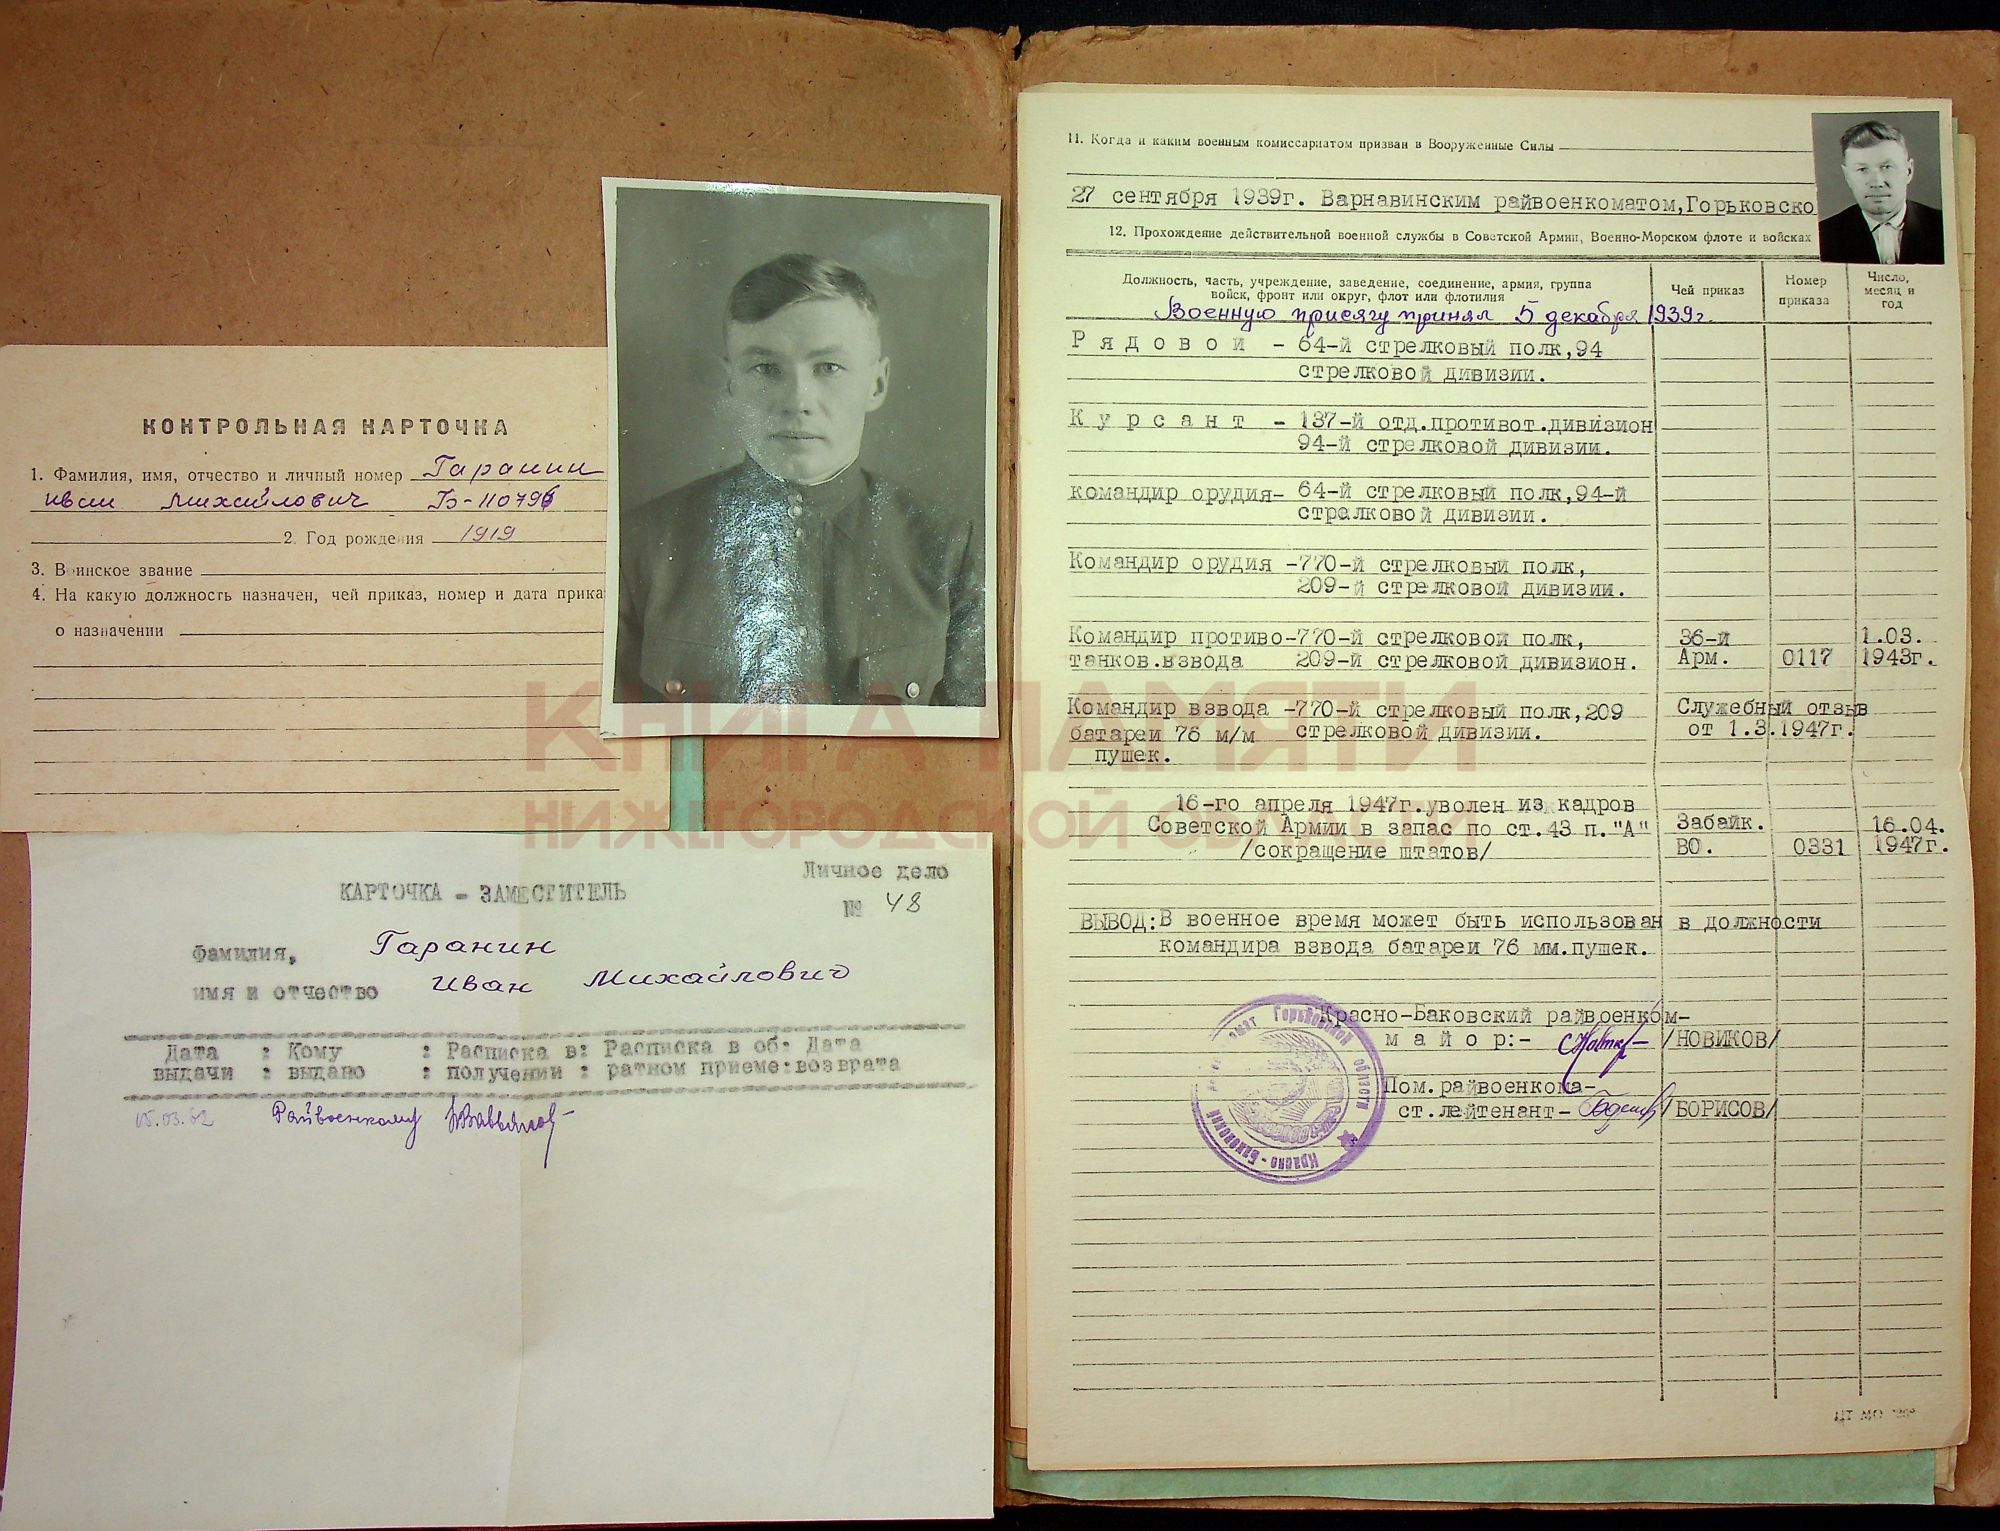 КОНТРОЛЬНАЯ КАРТОЧКА
1. Фамилия, имя, отчество и личный номер Гаранин
Иван Михайлович Б-110796
2. Год рождения 1919
3. Воинское звание
4. На какую должность назначен, чей приказ, номер и дата прика
о назначении
Личное дело
КАРТОЧКА - ЗАМЕСТИТЕЛЬ
№ 48
Фамилия, Гаранин
имя и отчество Иван Михайлович
Дата : Кому : Расписка в: Расписка в об: Дата
выдачи : выдано : получении : ратном приеме:возврата
15.03.62 Райвоенкому
11. Когда и каким военным комиссариатом призван в Вооруженные Силы
27 сентября 1939г. Варнавинским райвоенкоматом,Горьковско
12. Прохождение действительной военной службы в Советской Армии, Военно-Морском флоте и войсках
Должность, часть, учреждение, заведение, соединение, армия, группа
войск, фронт или округ, флот или флотилия
Чей приказ
Номер
приказа
Число,
месяц и
год
Военную присягу принял 5 декабря 1939г.
Рядовой - 64-й стрелковый полк,94
стрелковой дивизии.
Курсант - 137-й отд.противот.дивизион
94-й стрелковой дивизии.
командир орудия- 64-й стрелковый полк,94-й
стрелковой дивизии.
Командир орудия -770-й стрелковый полк,
209-й стрелковой дивизии.
Командир противо-770-й стрелковой полк, 36-й 1.03.
танков.взвода 209-й стрелковой дивизион. Арм. 0117 1943г.
Командир взвода -770-й стрелковый полк,209 Служебный отзыв
батареи 76 м/м стрелковой дивизии. от 1.3.1947г.
пушек.
16-го апреля 1947г.уволен из кадров
Советской Армии в запас по ст.43 п."А" Забайк. 16.04.
/сокращение штатов/ ВО. 0331 1947г.
ВЫВОД:В военное время может быть использован в должности
командира взвода батареи 76 мм.пушек.
Красно-Баковский райвоенком-
майор:- /НОВИКОВ/
Пом.райвоенкома-
ст.лейтенант- /БОРИСОВ/
Горьковской области
Красно-Баковский
КНИГА ПАМЯТИ
НИЖЕГОРОДСКОЙ ОБЛАСТИ